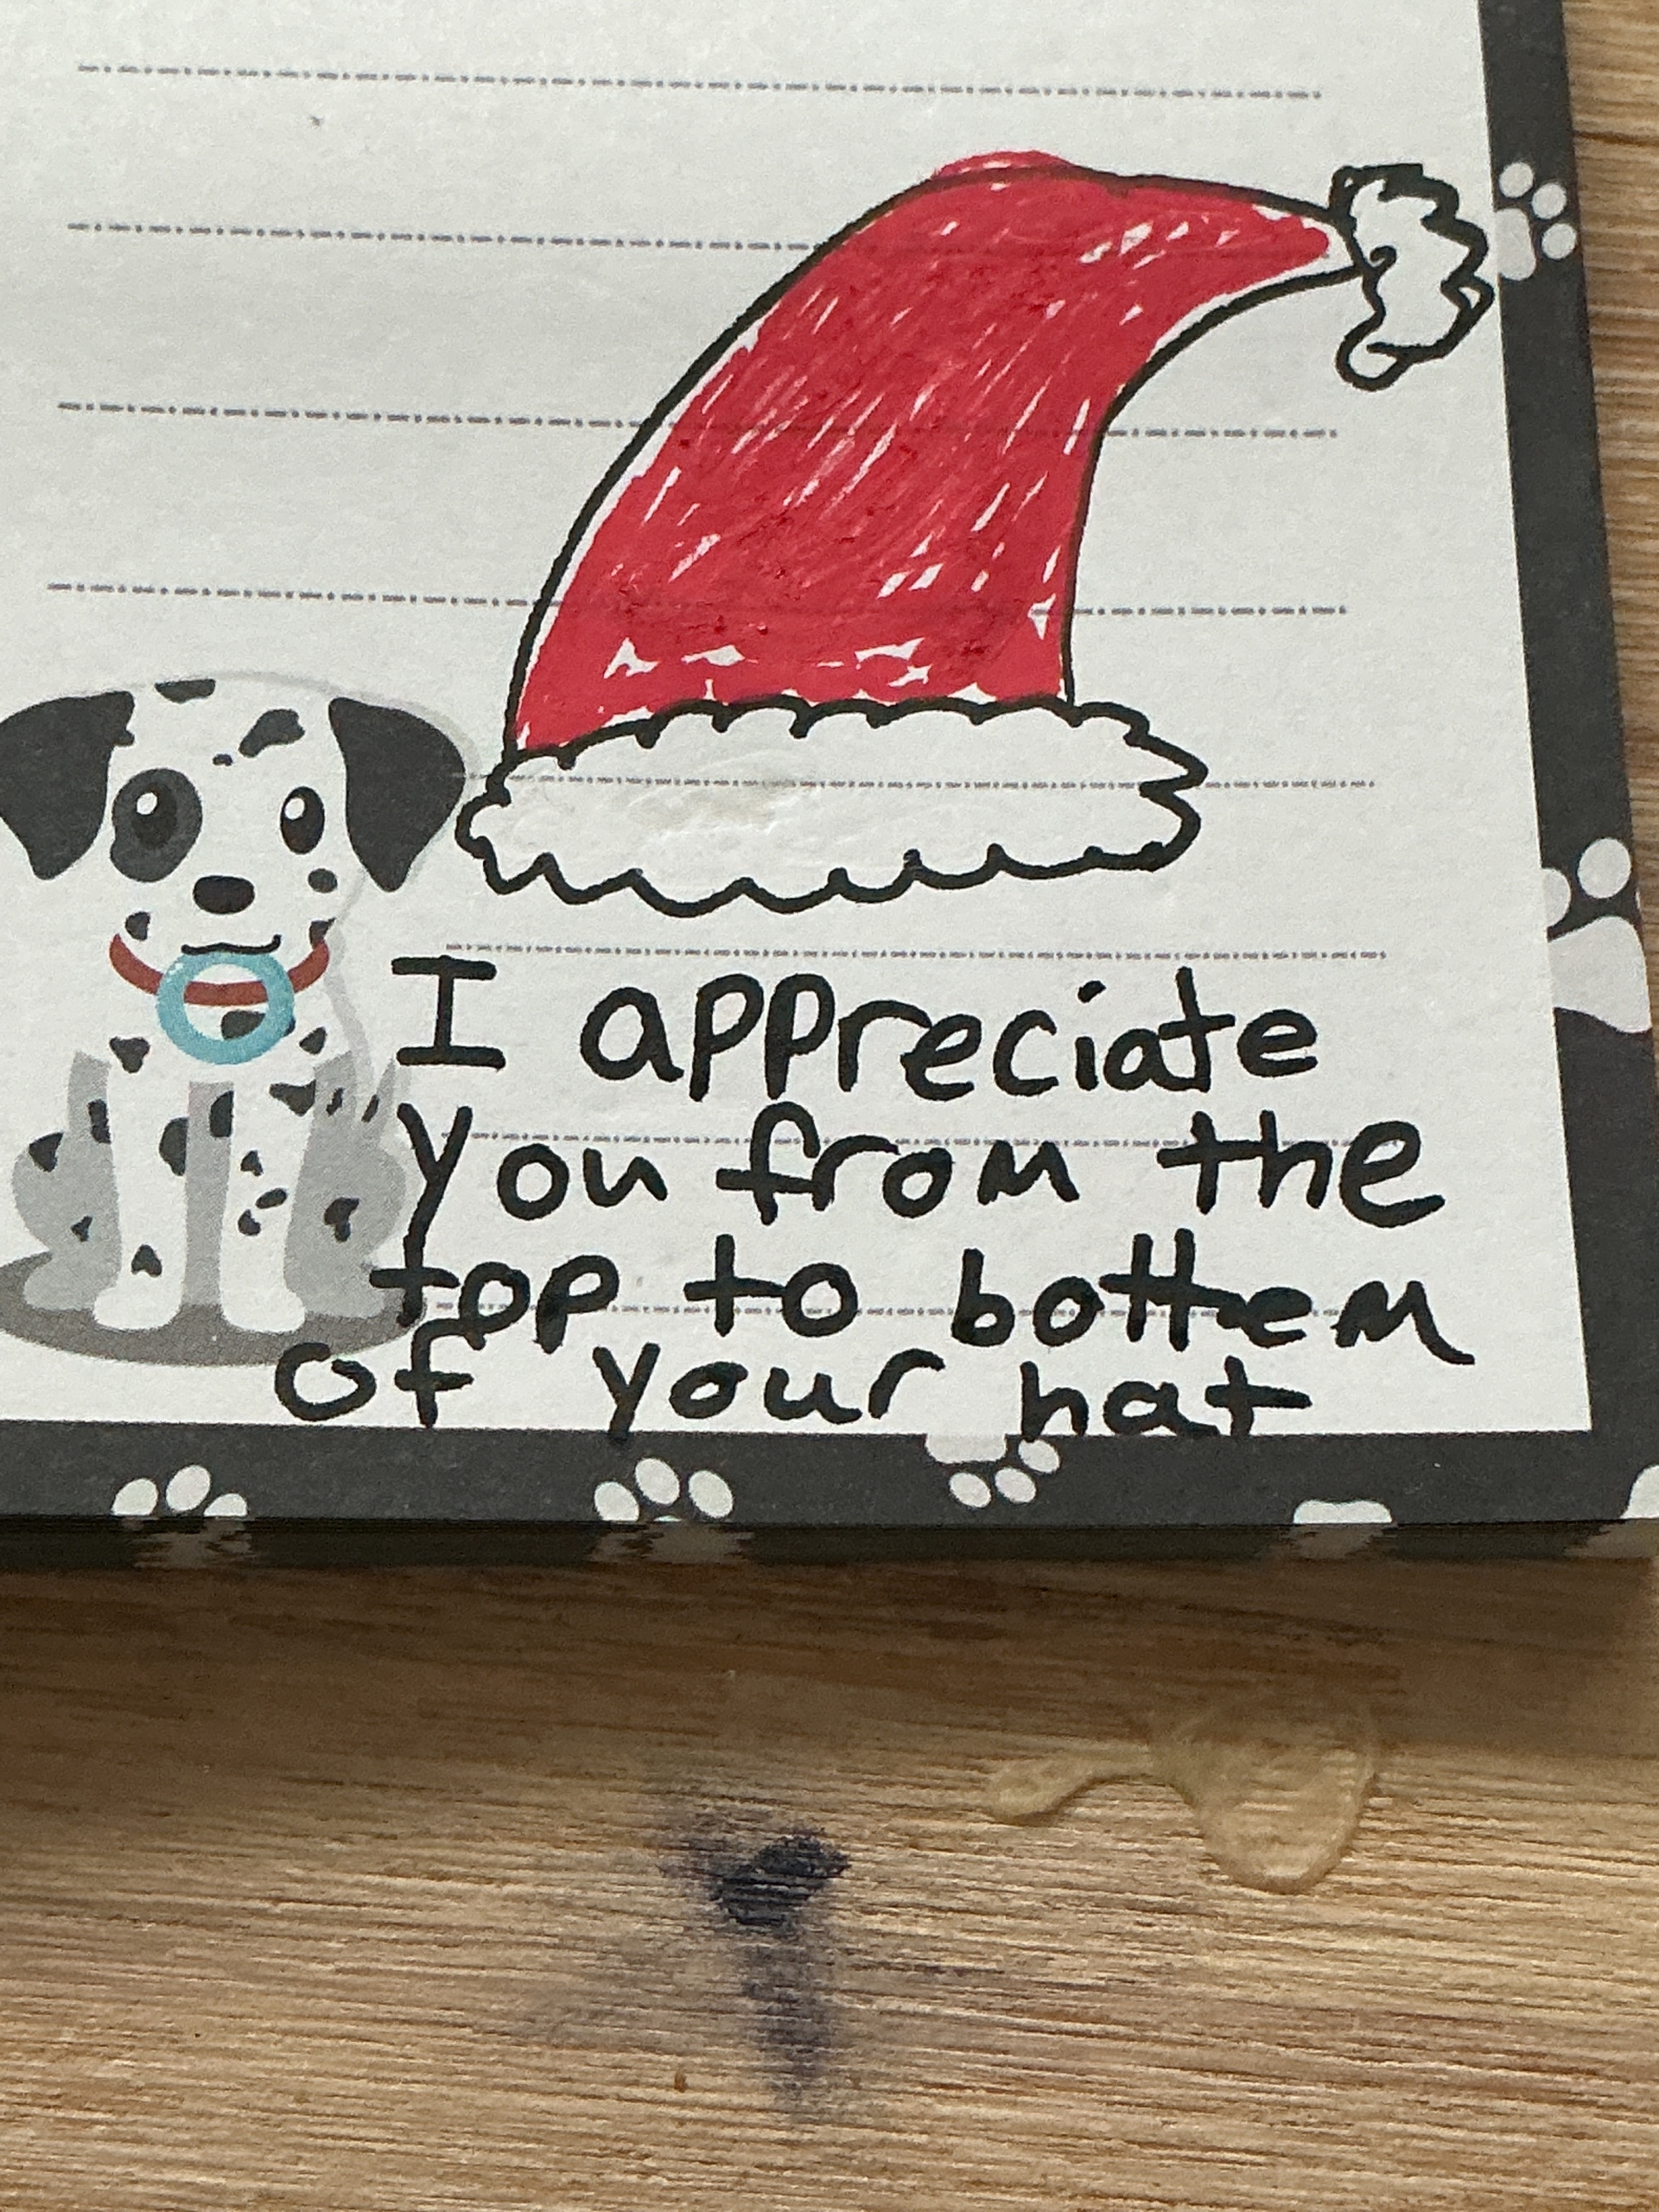 I appreciate
you from the
top to bottem
of your hat